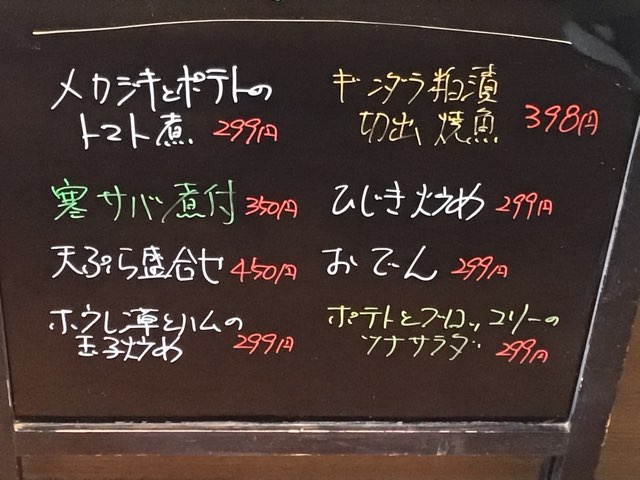 メカジキとポテトの
トマト煮 299円
寒サバ煮付 350円
天ぷら盛合せ 450円
ホウレン草とハムの
玉子炒め 299円
ギンダラ粕漬
切出 焼魚 398円
ひじき炒め 299円
おでん 299円
ポテトとブロッコリーの
ツナサラダ 299円